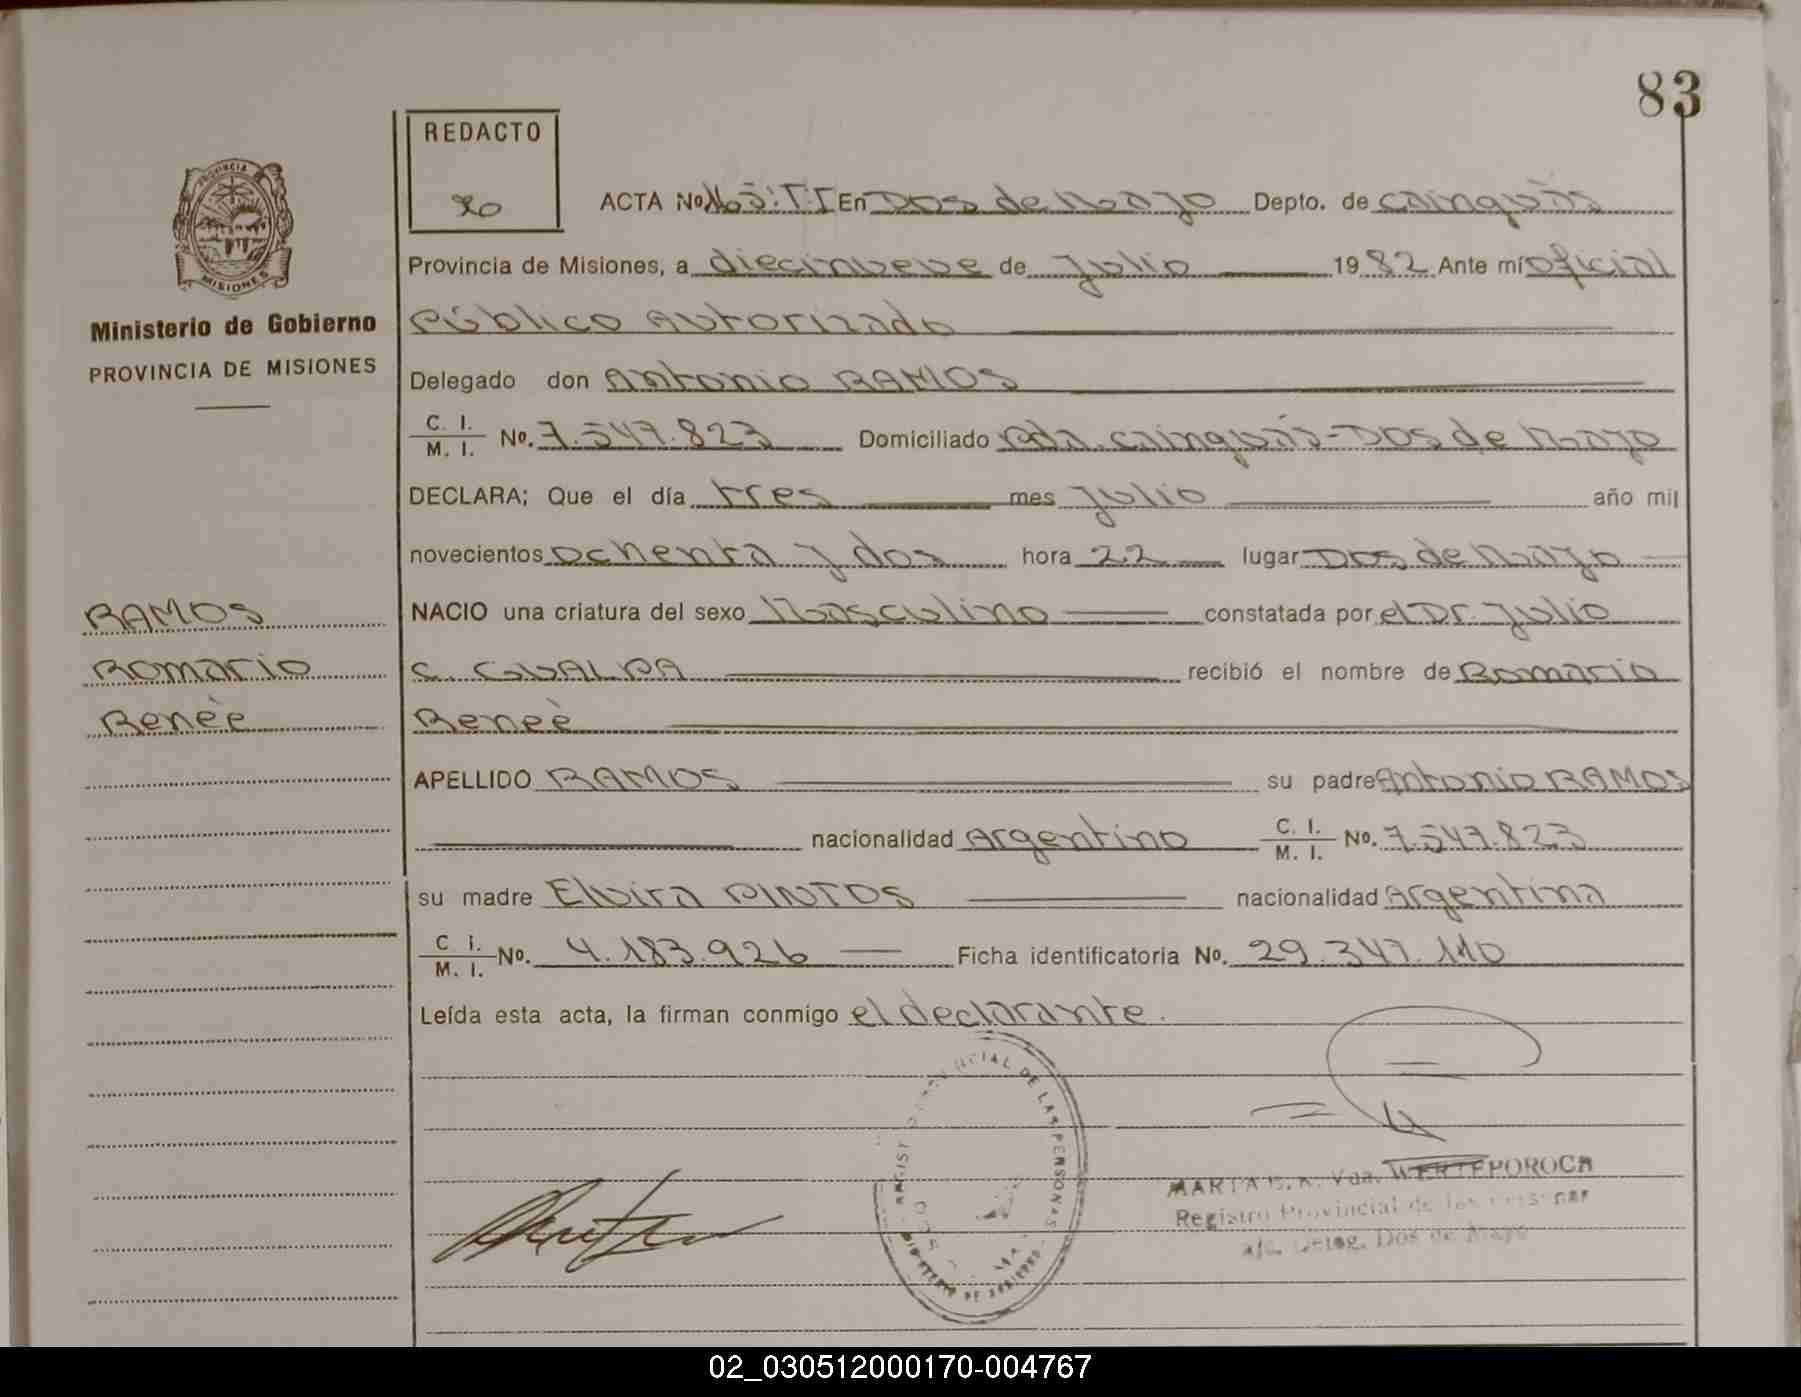 83
REDACTO
PROVINCIA
MISIONES
Ministerio de Gobierno
PROVINCIA DE MISIONES
ACTA No 163:T:I En Dos de Mayo Depto. de Cainguás
Provincia de Misiones, a diecinueve de Julio 1982 Ante mí oficial
Público Autorizado
Delegado don Antonio RAMOS
C. I. / M. I. No. 7.547.823 Domiciliado Pda. Cainguás-Dos de Mayo
DECLARA; Que el día tres mes Julio año mil
novecientos ochenta y dos hora 22 lugar Dos de Mayo
RAMOS
Romario
Reneè
NACIO una criatura del sexo Masculino constatada por el Dr. Julio
C. GUALPA recibió el nombre de Romario
Reneè
APELLIDO RAMOS su padre Antonio RAMOS
nacionalidad Argentino C. I. / M. I. No. 7.547.823
su madre Elvira PINTOS nacionalidad Argentina
C. I. / M. I. No. 4.183.926 Ficha identificatoria No. 29.347.110
Leída esta acta, la firman conmigo el declarante.
DE LAS PERSONAS
MARTA Vda. WERTEPOROCH
Registro Provincial de las Personas
Deleg. Dos de Mayo
02_030512000170-004767